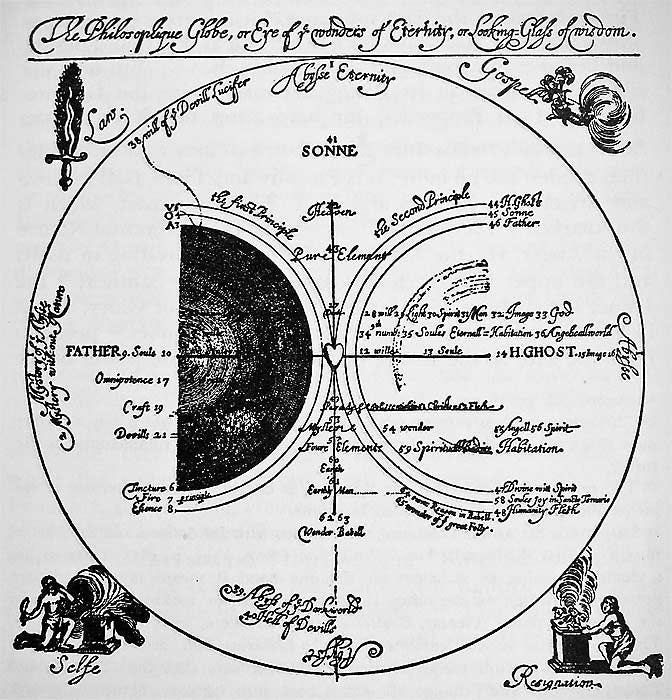 The Philosophique Globe, or Eye of yͤ wonders of Eternity, or Looking-Glass of wisdom.
Law.
Gospell
Abysse Eternity
38 will of yͤ Devill Lucifer
41
SONNE
the first Principle
Heaven
the Second Principle
44 H. Ghost
45 Sonne
46 Father.
V 5
O 4
A 3
Pure Element
27
28 will 29 Light 30 Spirit 31 Man 32 Image 33 God
34 numb: 35 Soules Eternall = Habitation 36 Angelicall world
FATHER 9. Soule 10
12 will 13 Soule
14 H. GHOST. 15 Image 16
Omnipotence 17
Craft 19
Devills 21
54 wonder
55 Angell 56 Spirit
Foure Elements
59 Spirituall
Habitation
60
Earth
61
Earthy Man
62 own Reason in Babell
63 wonder of great Folly
Tincture 6
Fire 7
Essence 8
47 Divine
Spirit
58 Soules Joy in
Ternario
48 Humanity Flesh
62 63
Wonder. Babell
Abysse of yͤ Darkworld
40 Hell of Devills
Abysse
Selfe
Resignation